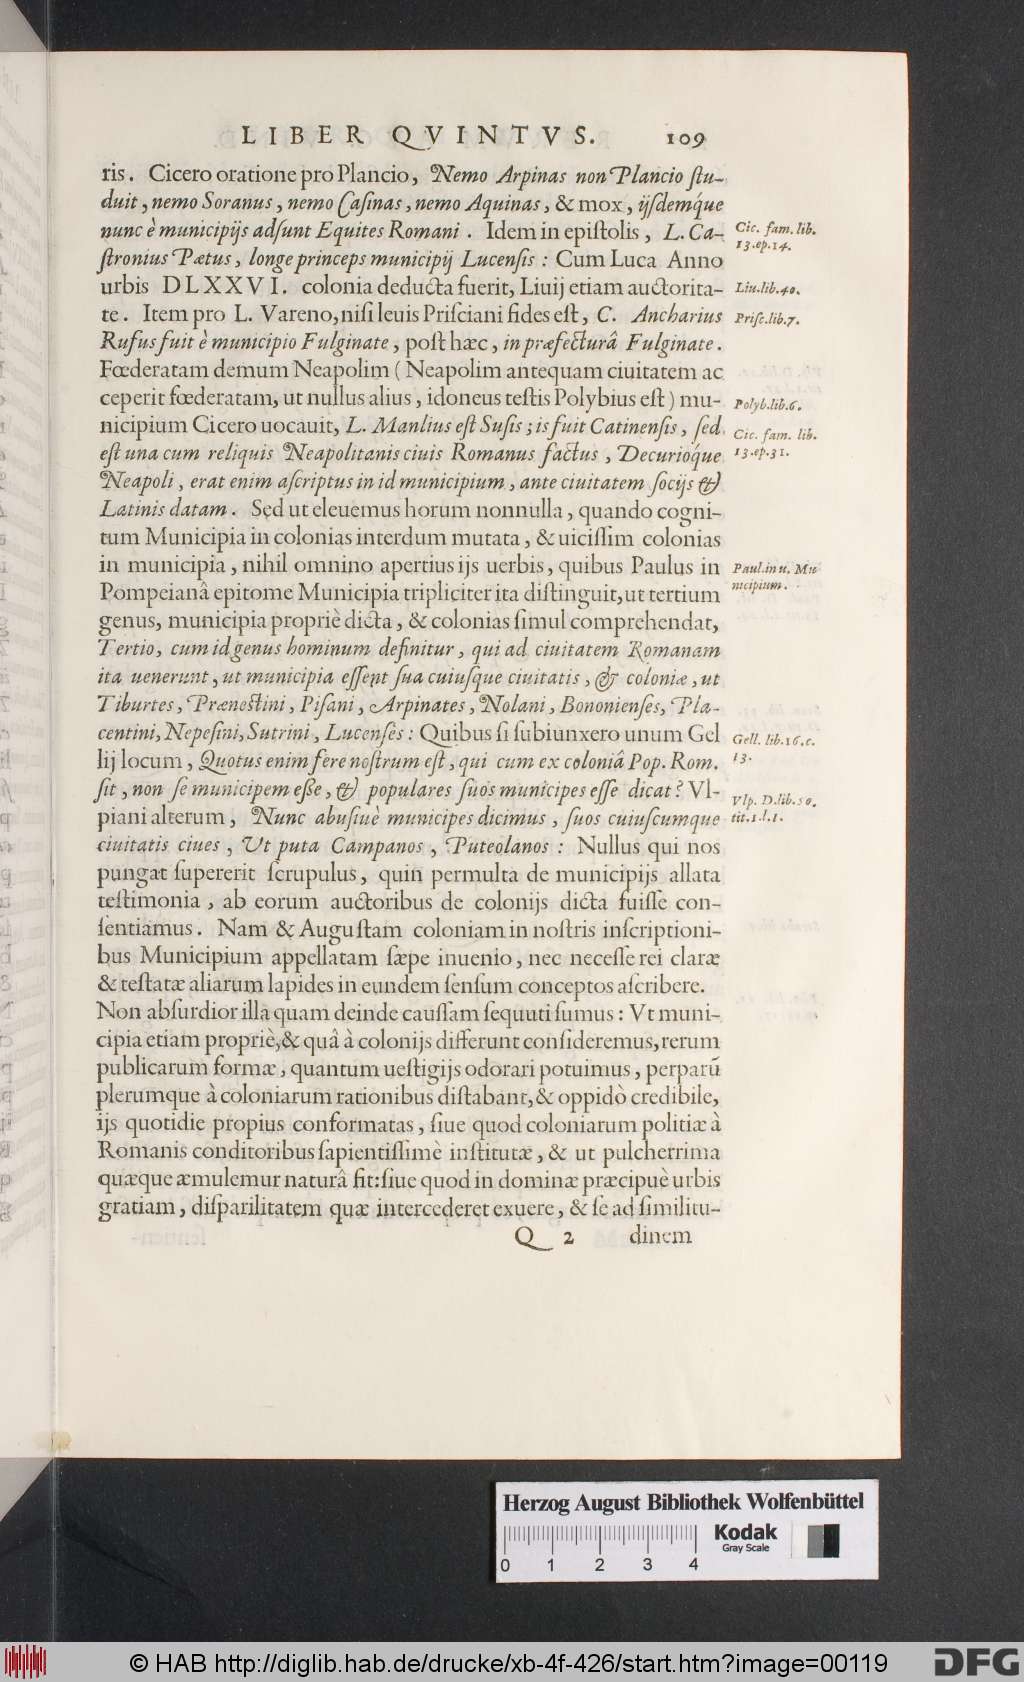 LIBER QVINTVS. 109
ris. Cicero oratione pro Plancio, Nemo Arpinas non Plancio ſtu-
duit, nemo Soranus, nemo Caſinas, nemo Aquinas, & mox, ijſdemq́ue
nunc è municipijs adſunt Equites Romani. Idem in epiſtolis, L. Ca-
Cic. fam. lib.
13. ep. 14.
ſtronius Pætus, longe princeps municipij Lucenſis: Cum Luca Anno
urbis DLXXVI. colonia deducta fuerit, Liuij etiam auctorita-
Liu. lib. 40.
te. Item pro L. Vareno, niſi leuis Priſciani fides eſt, C. Ancharius
Priſc. lib. 7.
Rufus fuit è municipio Fulginate, poſt hæc, in præfecturâ Fulginate.
Fœderatam demum Neapolim (Neapolim antequam ciuitatem ac
ceperit fœderatam, ut nullus alius, idoneus teſtis Polybius eſt) mu-
Polyb. lib. 6.
nicipium Cicero uocauit, L. Manlius eſt Suſis; is fuit Catinenſis, ſed
Cic. fam. lib.
13. ep. 31.
eſt una cum reliquis Neapolitanis ciuis Romanus factus, Decurioq́ue
Neapoli, erat enim aſcriptus in id municipium, ante ciuitatem ſocijs &
Latinis datam. Sed ut eleuemus horum nonnulla, quando cogni-
tum Municipia in colonias interdum mutata, & uiciſſim colonias
in municipia, nihil omnino apertius ijs uerbis, quibus Paulus in
Paul. in u. Mu
nicipium.
Pompeianâ epitome Municipia tripliciter ita diſtinguit, ut tertium
genus, municipia propriè dicta, & colonias ſimul comprehendat,
Tertio, cum id genus hominum definitur, qui ad ciuitatem Romanam
ita uenerunt, ut municipia eſſent ſua cuiuſque ciuitatis, & coloniæ, ut
Tiburtes, Præneſtini, Piſani, Arpinates, Nolani, Bononienſes, Pla-
centini, Nepeſini, Sutrini, Lucenſes: Quibus ſi ſubiunxero unum Gel
Gell. lib. 16. c.
13.
lij locum, Quotus enim fere noſtrum eſt, qui cum ex coloniâ Pop. Rom.
ſit, non ſe municipem eſſe, & populares ſuos municipes eſſe dicat? Vl-
Vlp. D. lib. 50.
tit. 1. l. 1.
piani alterum, Nunc abuſiuè municipes dicimus, ſuos cuiuſcumque
ciuitatis ciues, Ut puta Campanos, Puteolanos: Nullus qui nos
pungat ſupererit ſcrupulus, quin permulta de municipijs allata
teſtimonia, ab eorum auctoribus de colonijs dicta fuiſſe con-
ſentiamus. Nam & Auguſtam coloniam in noſtris inſcriptioni-
bus Municipium appellatam ſæpe inuenio, nec neceſſe rei claræ
& teſtatæ aliarum lapides in eundem ſenſum conceptos aſcribere.
Non abſurdior illa quam deinde cauſſam ſequuti ſumus: Vt muni-
cipia etiam propriè, & quâ à colonijs differunt conſideremus, rerum
publicarum formæ, quantum ueſtigijs odorari potuimus, perparũ
plerumque à coloniarum rationibus diſtabant, & oppidò credibile,
ijs quotidie propius conformatas, ſiue quod coloniarum politiæ à
Romanis conditoribus ſapientiſſimè inſtitutæ, & ut pulcherrima
quæque æmulemur naturâ fit: ſiue quod in dominæ præcipuè urbis
gratiam, diſparilitatem quæ intercederet exuere, & ſe ad ſimilitu-
Q 2 dinem
Herzog August Bibliothek Wolfenbüttel
Kodak
Gray Scale
0 1 2 3 4
© HAB http://diglib.hab.de/drucke/xb-4f-426/start.htm?image=00119
DFG